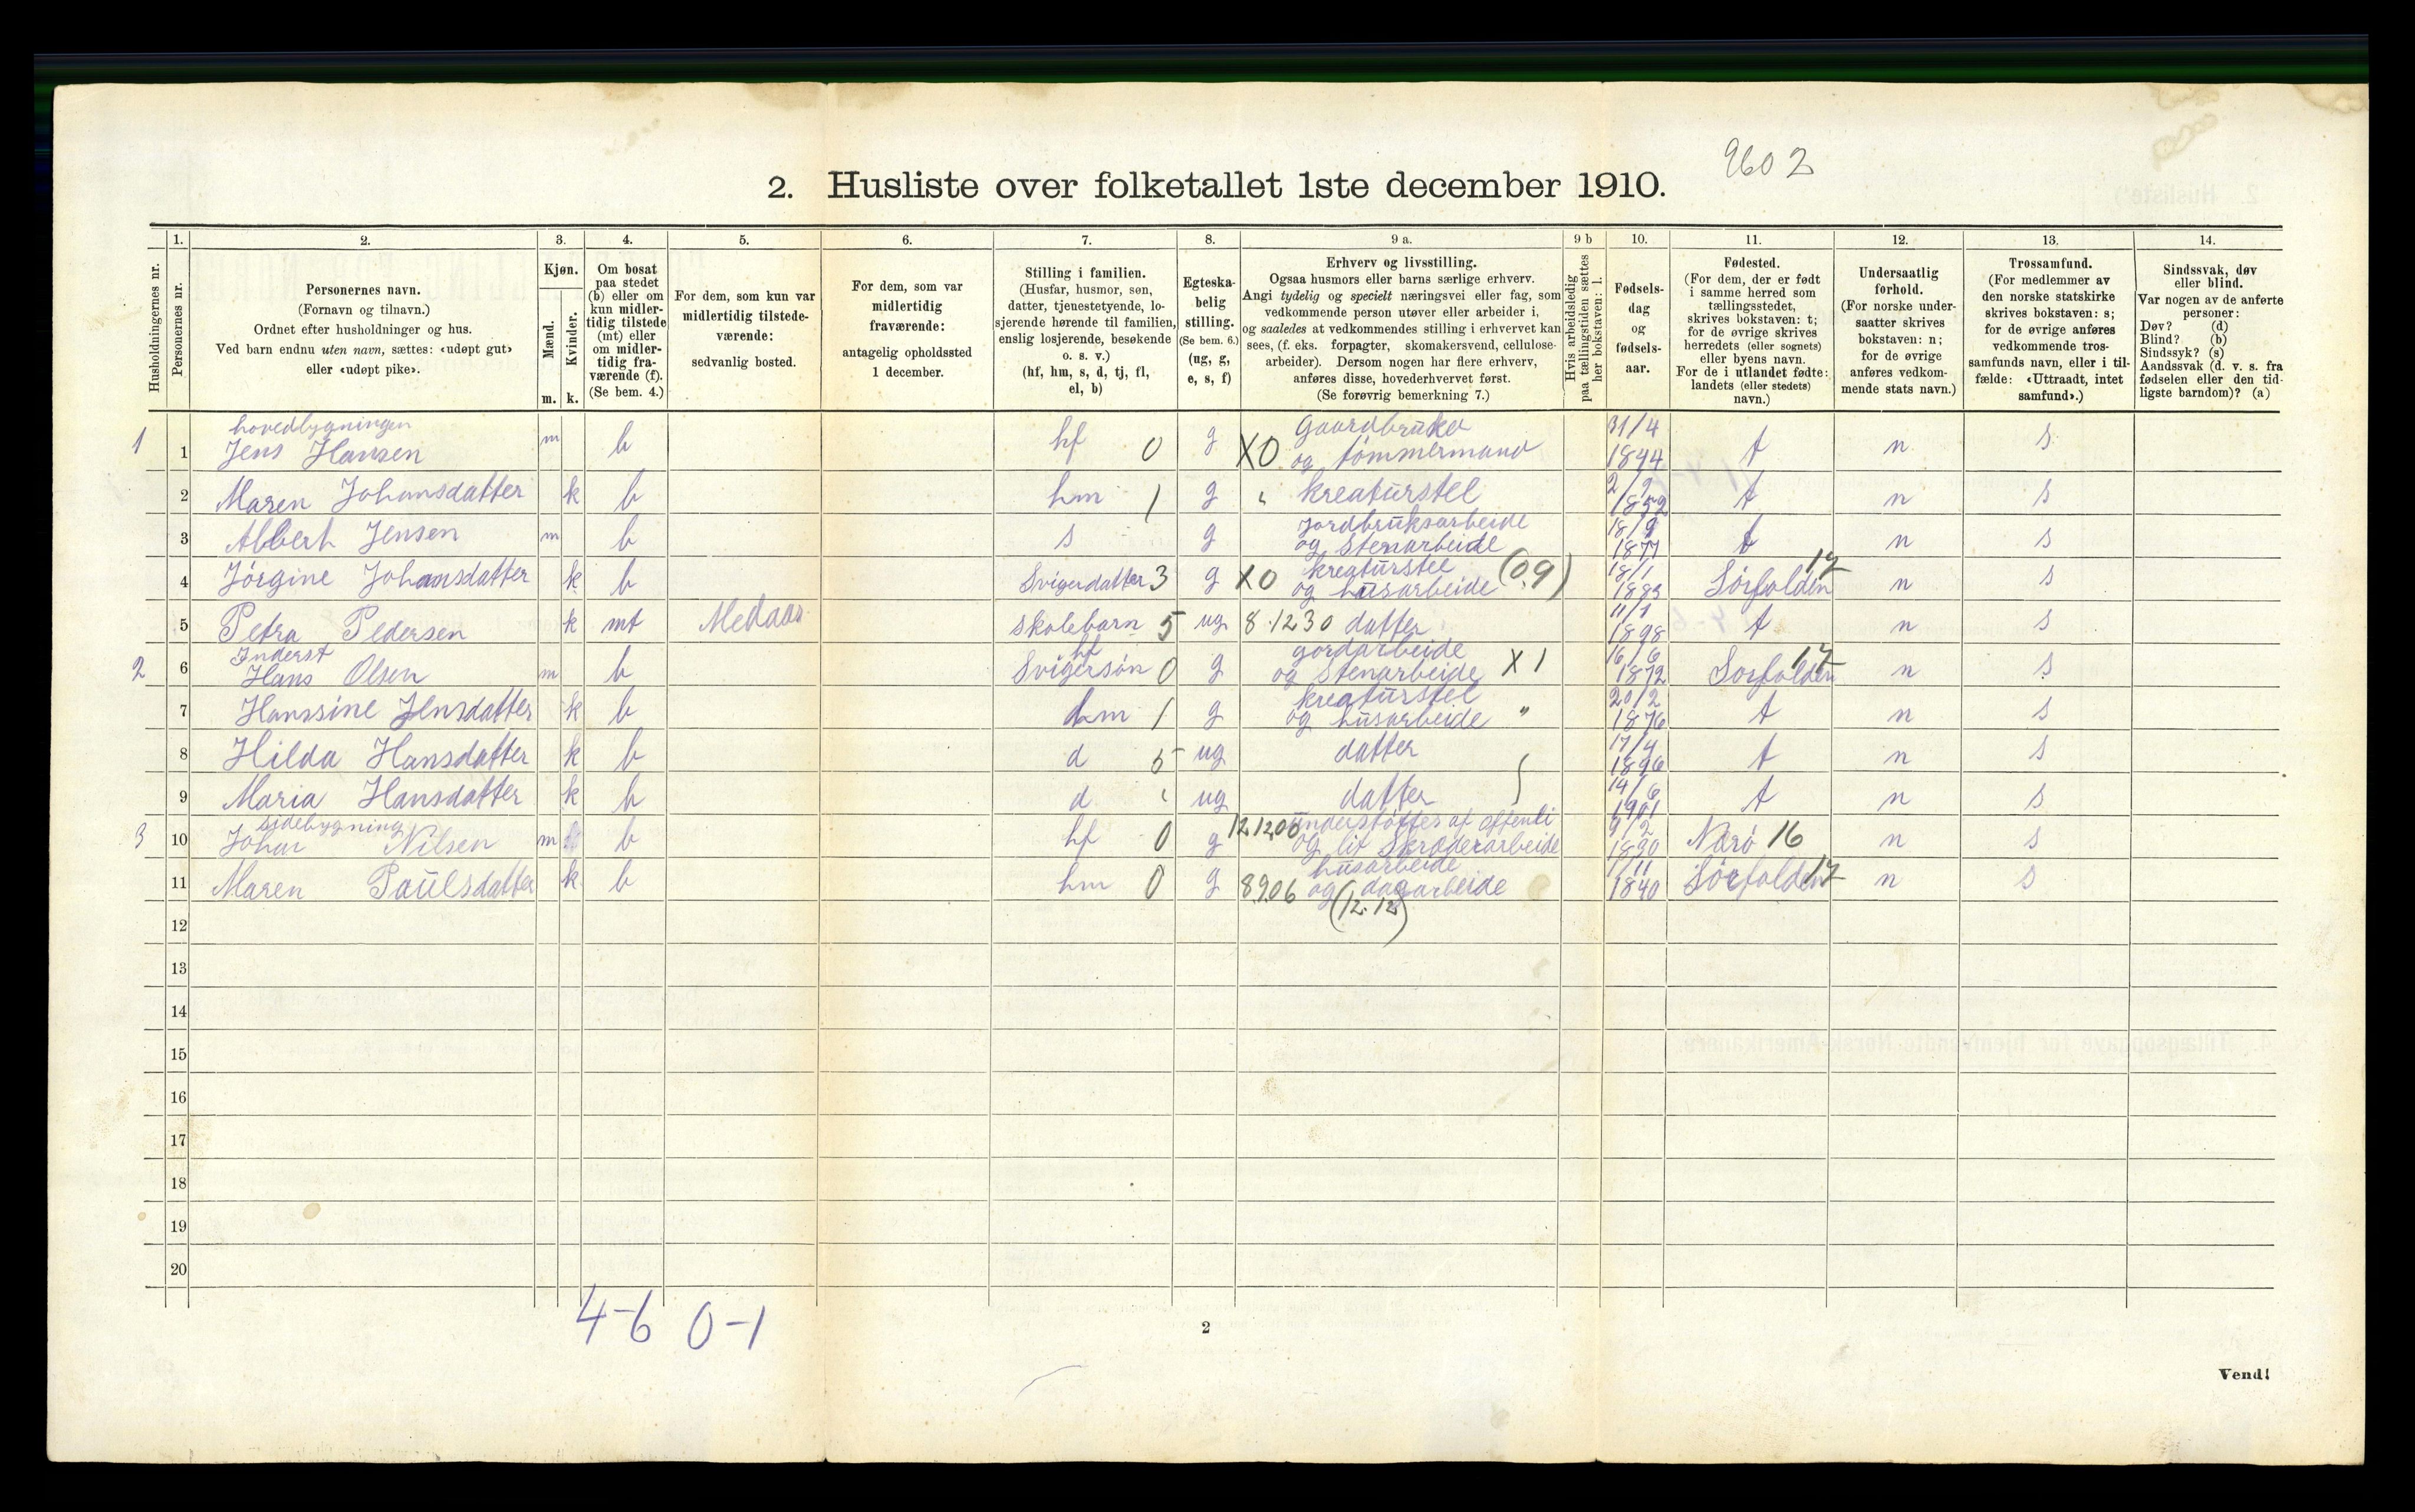 9602
2. Husliste over folketallet 1ste december 1910.
Husholdningernes nr.
1.
Personernes nr.
2.
Personernes navn.
(Fornavn og tilnavn.)
Ordnet efter husholdninger og hus.
Ved barn endnu uten navn, sættes: «udøpt gut»
eller «udøpt pike».
3.
Kjøn.
Mænd.
Kvinder.
m. k.
4.
Om bosat
paa stedet
(b) eller om
kun midler-
tidig tilstede
(mt) eller
om midler-
tidig fra-
værende (f).
(Se bem. 4.)
5.
For dem, som kun var
midlertidig tilstede-
værende:
sedvanlig bosted.
6.
For dem, som var
midlertidig
fraværende:
antagelig opholdssted
1 december.
7.
Stilling i familien.
(Husfar, husmor, søn,
datter, tjenestetyende, lo-
sjerende hørende til familien,
enslig losjerende, besøkende
o. s. v.)
(hf, hm, s, d, tj, fl,
el, b)
8.
Egteska-
belig
stilling.
(Se bem. 6.)
(ug, g,
e, s, f)
9 a.
Erhverv og livsstilling.
Ogsaa husmors eller barns særlige erhverv.
Angi tydelig og specielt næringsvei eller fag, som
vedkommende person utøver eller arbeider i,
og saaledes at vedkommendes stilling i erhvervet kan
sees, (f. eks. forpagter, skomakersvend, cellulose-
arbeider). Dersom nogen har flere erhverv,
anføres disse, hovederhvervet først.
(Se forøvrig bemerkning 7.)
9 b
Hvis arbeidsledig
paa tællingstiden sættes
her bokstaven: l.
10.
Fødsels-
dag
og
fødsels-
aar.
11.
Fødested.
(For dem, der er født
i samme herred som
tællingsstedet,
skrives bokstaven: t;
for de øvrige skrives
herredets (eller sognets)
eller byens navn.
For de i utlandet fødte:
landets (eller stedets)
navn.)
12.
Undersaatlig
forhold.
(For norske under-
saatter skrives
bokstaven: n;
for de øvrige
anføres vedkom-
mende stats navn.)
13.
Trossamfund.
(For medlemmer av
den norske statskirke
skrives bokstaven: s;
for de øvrige anføres
vedkommende tros-
samfunds navn, eller i til-
fælde: «Uttraadt, intet
samfund».)
14.
Sindssvak, døv
eller blind.
Var nogen av de anførte
personer:
Døv? (d)
Blind? (b)
Sindssyk? (s)
Aandssvak (d. v. s. fra
fødselen eller den tid-
ligste barndom)? (a)
hovedbygningen
1 1 Jens Hansen m b hf 0 g X0 Gaardbruker og tømmermand 31/4 1844 t n s
2 Maren Johansdatter k b hm 1 g " kreaturstel 2/2 1852 t n s
3 Albert Jensen m b s g jordbruksarbeide og stenarbeide 18/9 1877 t n s
4 Jörgine Johansdatter k b Svigerdatter 3 g X0 kreaturstel og husarbeide (0.9) 18/1 1883 Sörfolden 17 n s
5 Petra Pedersen k mt skolebarn 5 ug 8.1230 datter 11/1 1898 t n s
Inderst
2 6 Hans Olsen m b hf Svigersön 0 g gordarbeide og Stenarbeide X1 16/6 1872 Sörfolden 17 n s
7 Hanssine Jensdatter k b hm 1 g kreaturstel og husarbeide " 20/2 1876 t n s
8 Hilda Hansdatter k b d 5 ug datter 17/4 1896 t n s
9 Maria Hansdatter k b d " ug datter 14/6 1901 t n s
sidebygning
3 10 Johan Nilsen m b hf 0 g 12.1200 understøttes af offentli og lit Skræderarbeide 9/2 1830 Nærö 16 n s
11 Maren Paulsdatter k b hm 0 g 8906 husarbeide og dagarbeide (12.12) 1/11 1840 Sörfolden 17 n s
12
13
14
15
16
17
18
19
20
4-6 0-1
2
Vend!